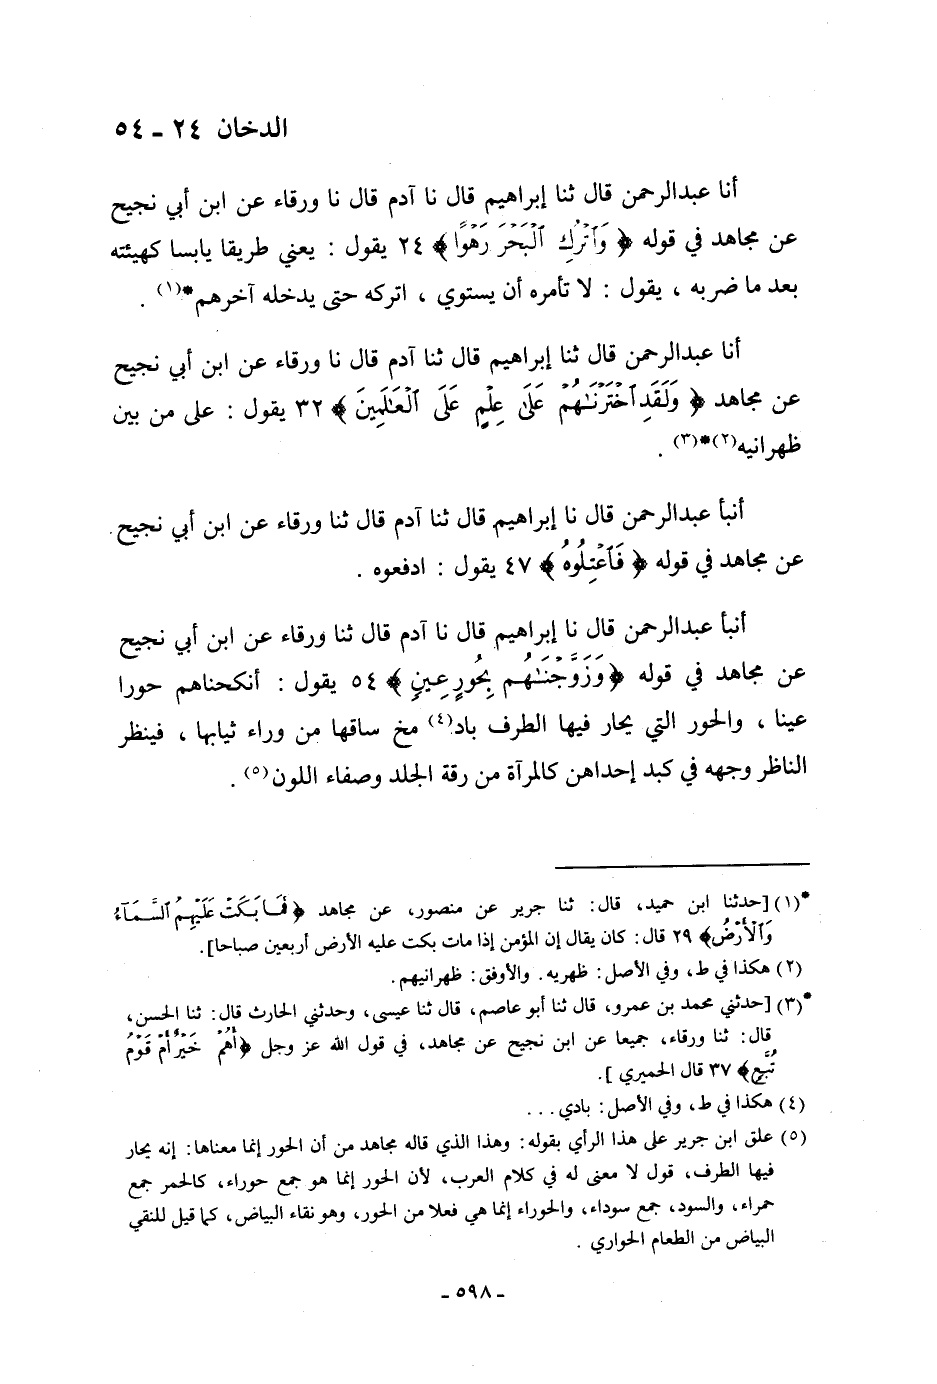 الدخان ٢٤ ـ ٥٤
أنا عبدالرحمن قال ثنا إبراهيم قال نا آدم قال نا ورقاء عن ابن أبي نجيح
عن مجاهد في قوله ﴿ وَٱتْرُكِ ٱلْبَحْرَ رَهْوًا ﴾ ٢٤ يقول : يعني طريقا يابسا كهيئته
بعد ما ضربه ، يقول : لا تأمره أن يستوي ، اتركه حتى يدخله آخرهم*(١) .
أنا عبدالرحمن قال ثنا إبراهيم قال ثنا آدم قال نا ورقاء عن ابن أبي نجيح
عن مجاهد ﴿ وَلَقَدِ ٱخْتَرْنَـٰهُمْ عَلَىٰ عِلْمٍ عَلَى ٱلْعَـٰلَمِينَ ﴾ ٣٢ يقول : على من بين
ظهرانيه(٢)*(٣) .
أنبأ عبدالرحمن قال نا إبراهيم قال ثنا آدم قال ثنا ورقاء عن ابن أبي نجيح.
عن مجاهد في قوله ﴿ فَٱعْتِلُوهُ ﴾ ٤٧ يقول : ادفعوه .
أنبأ عبدالرحمن قال نا إبراهيم قال نا آدم قال ثنا ورقاء عن ابن أبي نجيح
عن مجاهد في قوله ﴿ وَزَوَّجْنَـٰهُم بِحُورٍ عِينٍ ﴾ ٥٤ يقول : أنكحناهم حورا
عينا ، والحور التي يحار فيها الطرف باد(٤) مخ ساقها من وراء ثيابها ، فينظر
الناظر وجهه في كبد إحداهن كالمرآة من رقة الجلد وصفاء اللون(٥) .
*(١) [حدثنا ابن حميد، قال: ثنا جرير عن منصور، عن مجاهد ﴿ فَمَا بَكَتْ عَلَيْهِمُ ٱلسَّمَآءُ
وَٱلْأَرْضُ ﴾ ٢٩ قال: كان يقال إن المؤمن إذا مات بكت عليه الأرض أربعين صباحا].
(٢) هكذا في ط، وفي الأصل: ظهريه. والأوفق: ظهرانيهم.
*(٣) [حدثني محمد بن عمرو، قال ثنا أبو عاصم، قال ثنا عيسى، وحدثني الحارث قال: ثنا الحسن،
قال: ثنا ورقاء، جميعا عن ابن نجيح عن مجاهد، في قول الله عز وجل ﴿ أَهُمْ خَيْرٌ أَمْ قَوْمُ
تُبَّعٍ ﴾ ٣٧ قال الحميري ].
(٤) هكذا في ط، وفي الأصل: بادي...
(٥) علق ابن جرير على هذا الرأي بقوله: وهذا الذي قاله مجاهد من أن الحور إنما معناها: إنه يحار
فيها الطرف، قول لا معنى له في كلام العرب، لأن الحور إنما هو جمع حوراء، كالحمر جمع
حمراء، والسود، جمع سوداء، والحوراء إنما هي فعلا من الحور، وهو نقاء البياض، كما قيل للنقي
البياض من الطعام الحواري .
ـ ٥٩٨ ـ